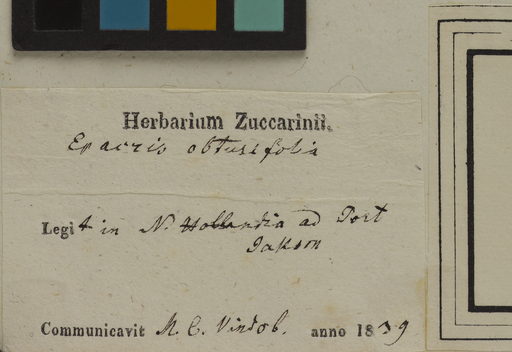 Herbarium Zuccarinii.
Epacris obtusifolia
Legit in N. Hollandia ad Port
Jakson
Communicavit M. C. Vindob. anno 1839